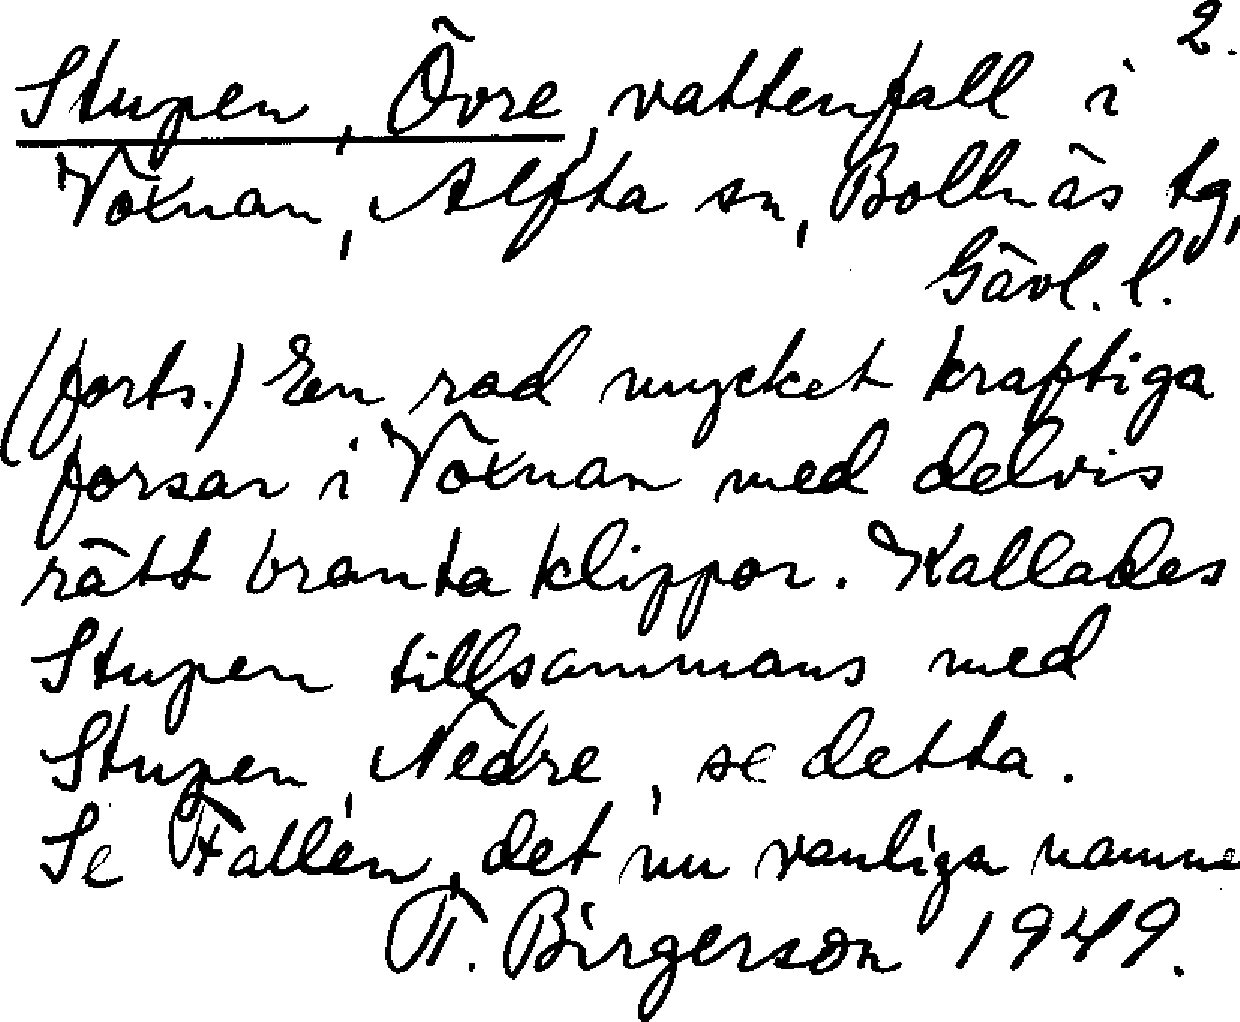 2.
Stupen, Övre, vattenfall i
Voxnan, Alfta sn, Bollnäs tg,
Gävl. l.
(forts.) En rad mycket kraftiga
forsar i Voxnan med delvis
rätt branta klippor. Kallades
Stupen tillsammans med
Stupen, Nedre, se detta.
Se Fallen, det nu vanliga namne
T. Birgerson 1949.